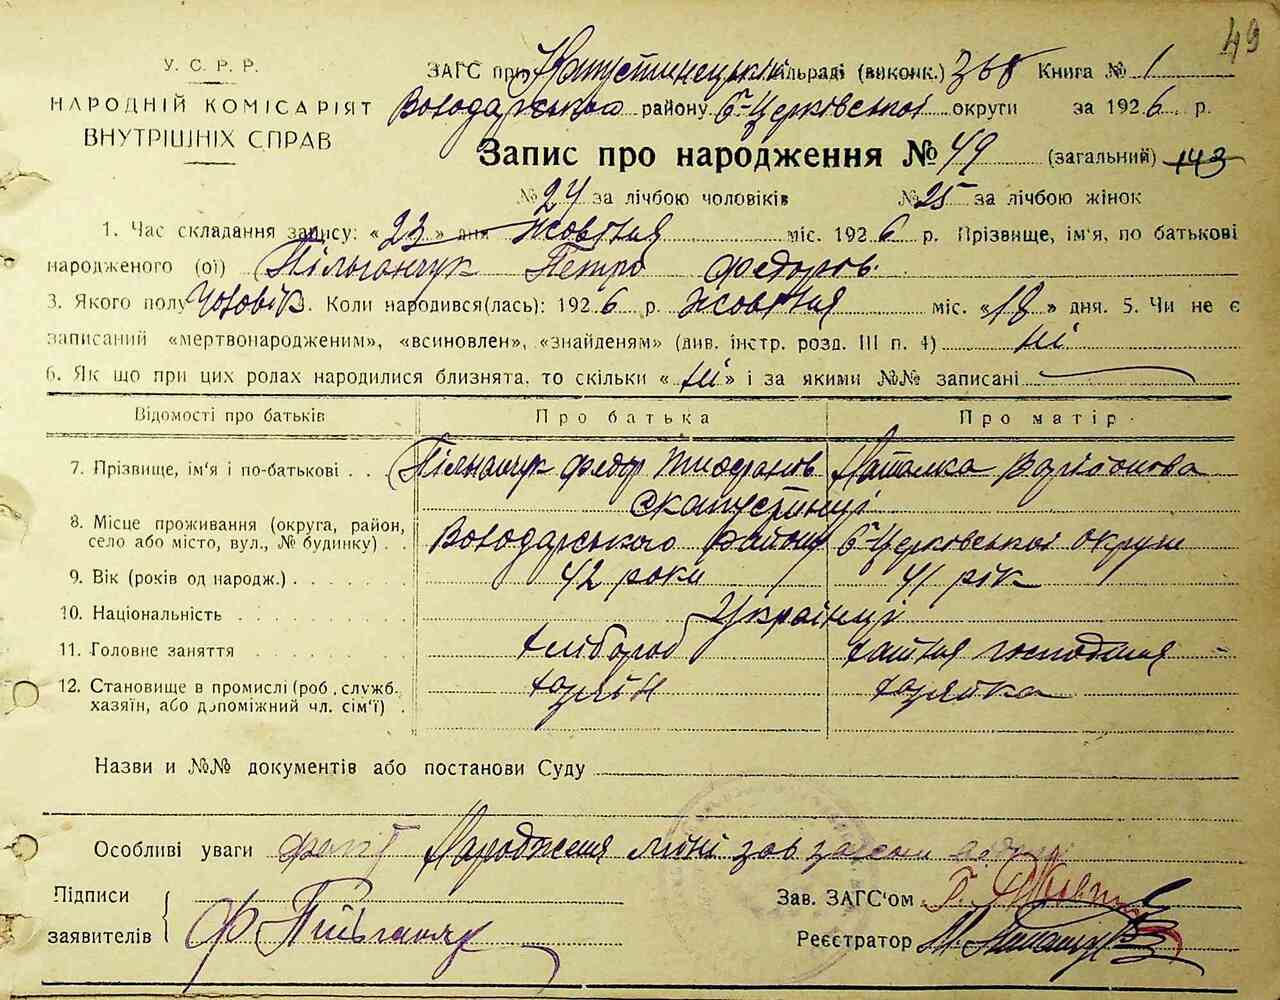 49
У. С. Р. Р.
НАРОДНІЙ КОМІСАРІЯТ
ВНУТРІШНІХ СПРАВ
ЗАГС при Капустинецькій сільраді (виконк.) Книга № 1
Володарського району Б-Церковської округи за 1926 р.
Запис про народження № 49 (загальний) 143
№ 24 за лічбою чоловіків № 25 за лічбою жінок
1. Час складання запису: « 23 » дня жовтня міс. 1926 р. Прізвище, ім'я, по батькові
народженого (ої) Пільганчук Петро Федоров.
3. Якого полу Чоловік. Коли народився(лась): 1926 р. жовтня міс. «18» дня. 5. Чи не є
записаний «мертвонародженим», «всиновлен», «знайденям» (див. інстр. розд. III п. 4) ні
6. Як що при цих родах народилися близнята, то скільки « ні » і за якими №№ записані
Відомості про батьків Про батька Про матір
7. Прізвище, ім'я і по-батькові . . Пільганчук Федор Наталка
с Капустинці
8. Місце проживання (округа, район,
село або місто, вул., № будинку) . . Володарського району Б-Церковської округи
9. Вік (років од народж.) 42 роки 41 рік
10. Національність Українці
11. Головне заняття хлібороб хатня господиня
12. Становище в промислі (роб., служб.
хазяїн, або допоміжний чл. сім'ї) . хазяїн хазяйка
Назви и №№ документів або постанови Суду
Особливі уваги факт Народження
Підписи
заявителів Ф Пільганчук
Зав. ЗАГС'ом
Реєстратор М.